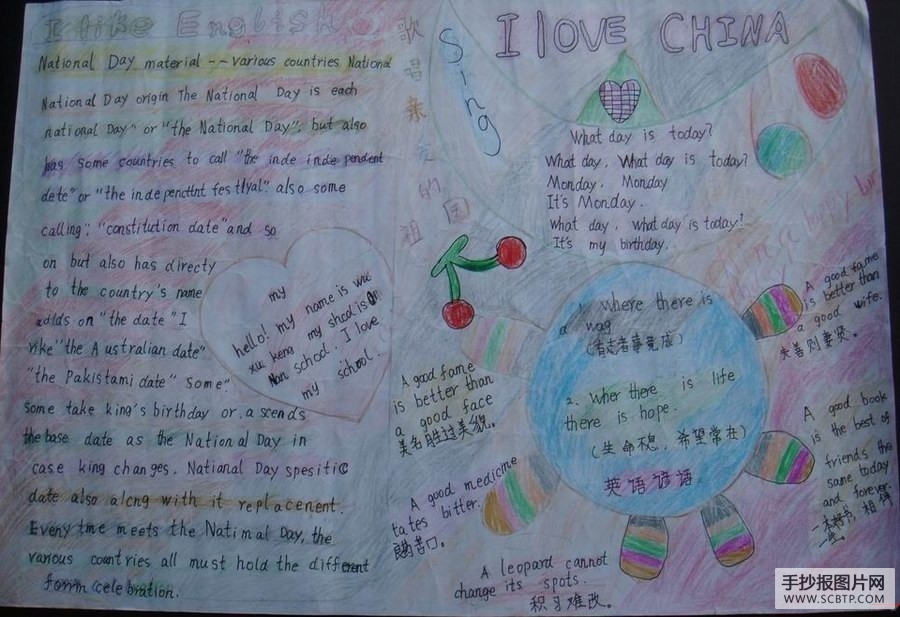 I like English
National Day material -- various countries National
National Day origin The National Day is each
national Day" or "the National Day", but also
has some countries to call "the inde inde pendent
dete" or "the indepencttnt festlyal". also some
calling; "constitution date" and so
on but also has directy
to the country's name
adds on "the date" I
rike "the Australian date"
"the Pakistami date" Some"
some take king's birthday or ascends
the base date as the National Day in
case king changes. National Day spesitic
date also alcng with it replacenent.
Eveny tme meets the Natimal Day, the
various countries all must hold the different
form celebration.
my
hello! my name is wu
xu keng my shcd is
Nan school. I love
my school.
歌唱亲爱的祖国
Sing
I lOVE CHINA
What day is today?
What day, What day is today?
Monday, Monday
It's Monday.
What day, what day is today?
It's my birthday.
1. where there is
a wag
(有志者事竟成)
2. Wher there is life
there is hope.
(生命不息,希望常在)
英语谚语
A good fame
is better than
a good face
美名胜过美貌。
A good medicine
tates bitter.
良药苦口。
A leopard cannot
change its spots.
积习难改。
A good fame
is better than
a good wife.
A good book
is the best of
friends the
same today
and forever.
手抄报图片网
WWW.SCBTP.COM